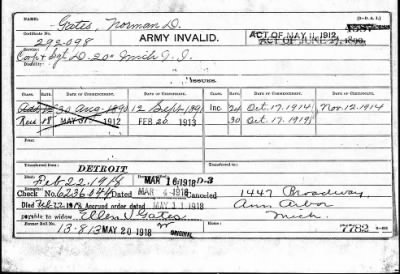 NAME: Gates, Norman D. [3—D. A. I.]
Certificate No. 292-098 ARMY INVALID. ACT OF MAY 11, 1912.
ACT OF JUNE 27, 1890.
Service: Corp & Sgt D. 20" Mich I. I.
Disability:
ISSUES.
CLASS. RATE. DATE OF COMMENCEMENT. DATE OF CERTIFICATE. CLASS. RATE. DATE OF COMMENCEMENT. DATE OF CERTIFICATE.
12 20 Aug. 1890 12 Sept. 1891 Inc 24 Oct. 17. 1914 Nov. 12. 1914
18 MAY 1912 FEB 20 1913 30 Oct. 17. 1919
Transferred from DETROIT Transferred to
Died Feb. 22. 1918 MAR 16 1918 D-3
Check No. 6236044 Dated MAR 4 1918 Canceled 1447 Broadway
Died Feb 22-1918 Accrued order dated MAY 11 1918 Ann Arbor
payable to widow Ellen V Gates Mich.
Former Roll No. 13-813 MAY 20 1918 ORIGINAL 7782